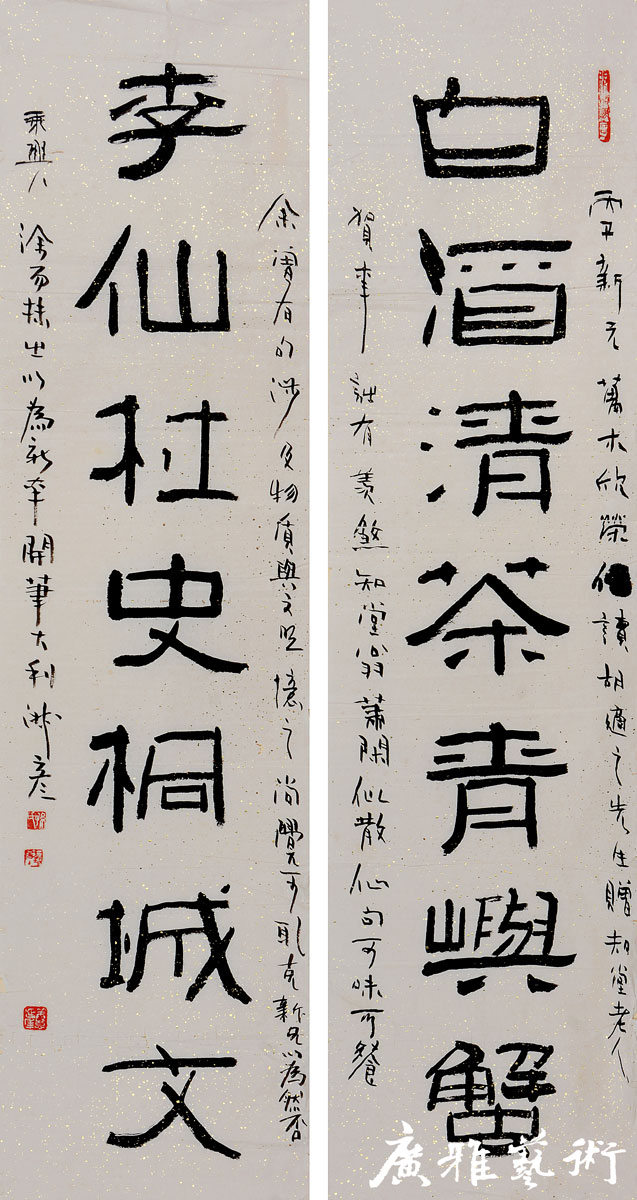 新元萬木欣榮讀胡適之先生贈知堂老人
白酒清茶青嶼蟹
賀年詩有羨煞知堂翁蕭閑似散仙句可味可餐
余嘗有句涉及物質與文憶之尚覺可耽克新兄以為然否
李仙杜史桐城文
乘興塗而抹出以為新年開筆大利彥
廣雅藝術